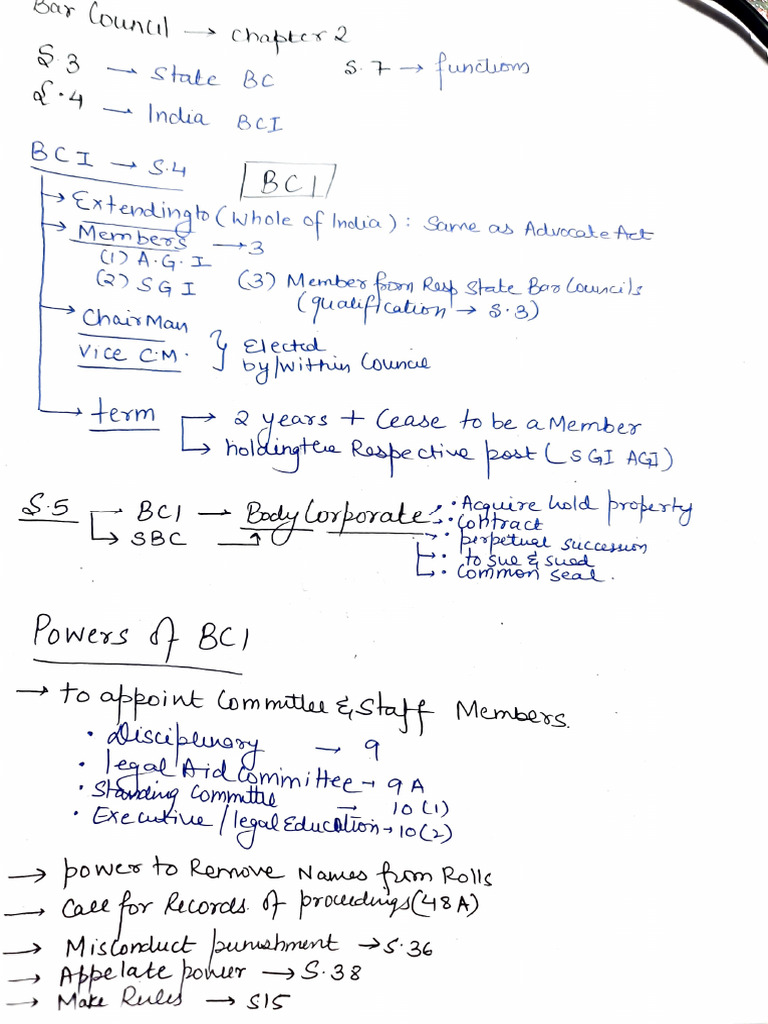 Bar Council → chapter 2
S.3 → State BC S.7 → functions
S.4 → India BCI
BCI → S.4 BCI
→ Extending to (Whole of India) : Same as Advocate Act
→ Members → 3
(1) A.G.I
(2) SGI (3) Member from Resp State Bar Councils
(qualification → S.3)
→ ChairMan
Vice C.M. } Elected
by/within Council
→ term → 2 years + Cease to be a Member
→ holding the Respective post (SGI AGI)
S.5 → BCI → Body Corporate · Acquire hold property
→ SBC · Contract
· perpetual succession
· to sue & sued
· Common seal.
Powers of BCI
→ to appoint Committee & Staff Members.
· Disciplenary → 9
· legal Aid Committee → 9A
· Standing Committe → 10(1)
· Executive / legal Education → 10(2)
→ power to Remove Names from Rolls
→ Call for Records of proceedings (48A)
→ Misconduct punishment → S.36
→ Appelate power → S.38
→ Make Rules → S15